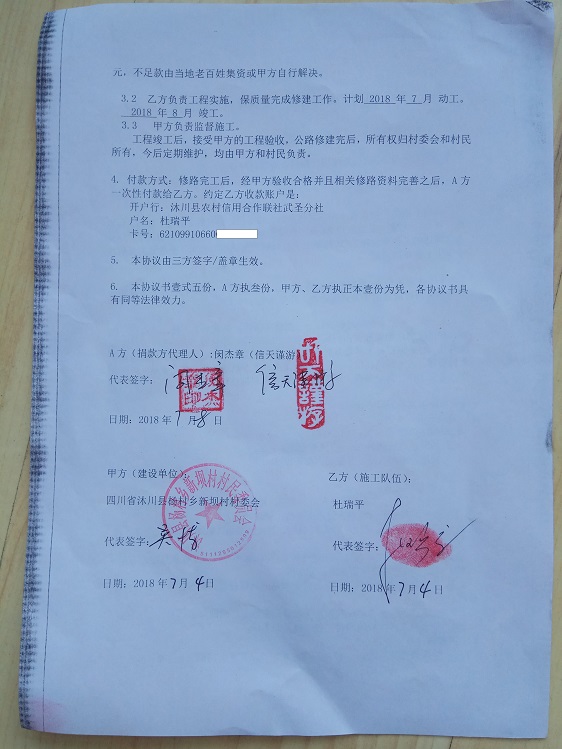 元，不足款由当地老百姓集资或甲方自行解决。
3.2 乙方负责工程实施，保质量完成修建工作。计划 2018 年 7 月 动工。
2018 年 8 月 竣工。
3.3 甲方负责监督施工。
工程竣工后，接受甲方的工程验收，公路修建完后，所有权归村委会和村民
所有，今后定期维护，均由甲方和村民负责。
4. 付款方式：修路完工后，经甲方验收合格并且相关修路资料完善之后，A方
一次性付款给乙方。约定乙方收款账户是：
开户行：沐川县农村信用合作联社武圣分社
户名：杜瑞平
卡号：62109910660
5. 本协议由三方签字/盖章生效。
6. 本协议书壹式五份，A方执叁份，甲方、乙方执正本壹份为凭，各协议书具
有同等法律效力。
A方（捐款方代理人）：闵杰章（信天谨游
代表签字： 信天谨游
日期：2018年7月8日
甲方（建设单位）：
乙方（施工队伍）：
四川省沐川县杨村乡新坝村村委会
杜瑞平
代表签字：
代表签字：
日期：2018年7月4日
日期：2018年7月4日